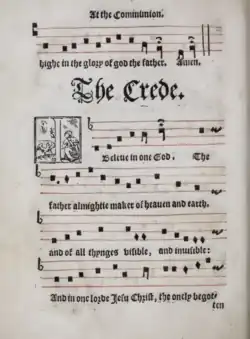 At the Communion.
highe in the glory of god the father. Amen.
The Crede.
Beleue in one God. The
father almightie maker of heauen and earth.
and of all thynges visible, and inuisible:
And in one lorde Jesu Christ, the onely begot-
ten